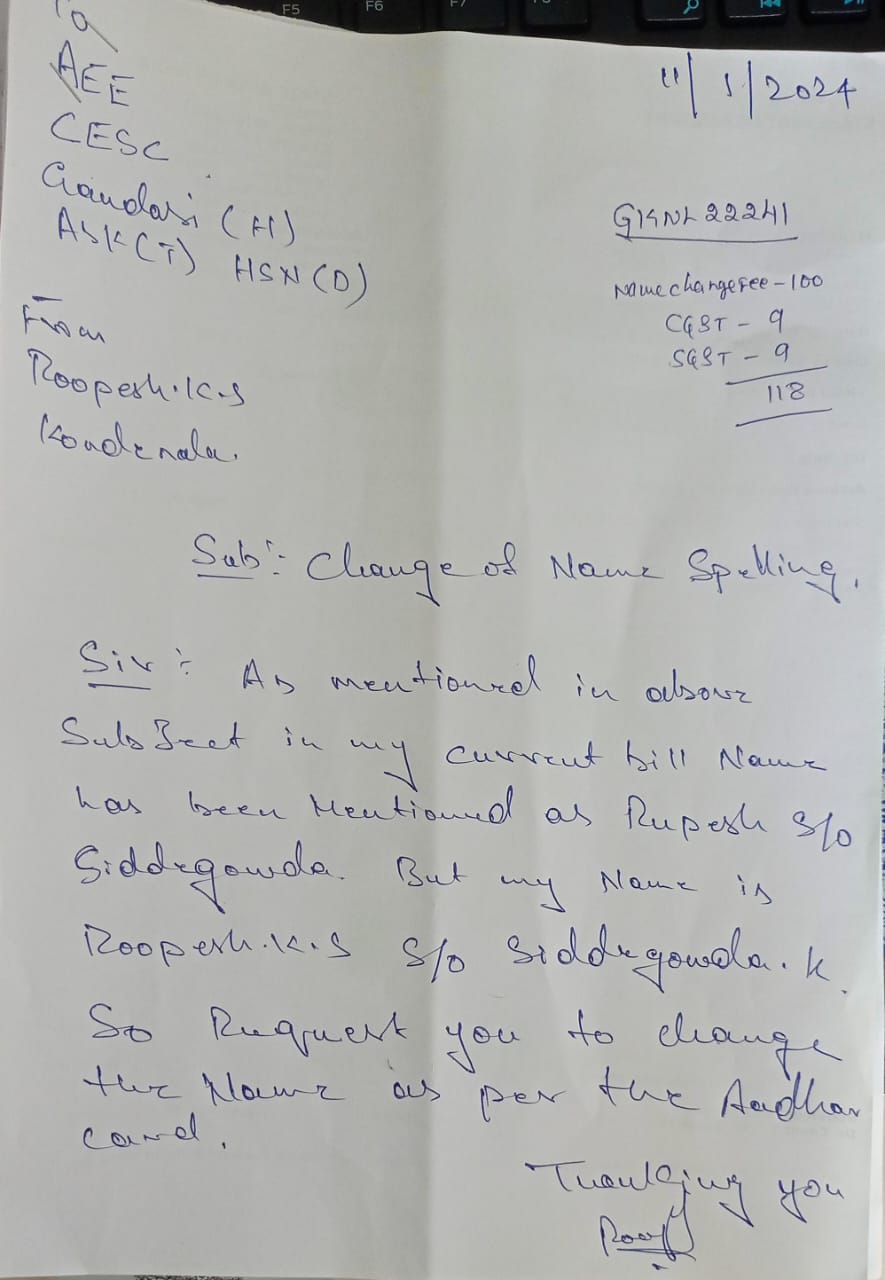 To
AEE
CESC
Gandasi (H)
ASK (T) HSN (D)
11/1/2024
GKNL22241
Name change fee - 100
CGST - 9
SGST - 9
118
From
Roopesh.K.S
Kondenala.
Sub:- Change of Name Spelling.
Sir:- As mentioned in above
Subject in my current bill Name
has been Mentioned as Rupesh S/o
Siddegowda. But my Name is
Roopesh.K.S S/o Siddegowda.K.
So Request you to change
the Name as per the Aadhar
card.
Thanking you